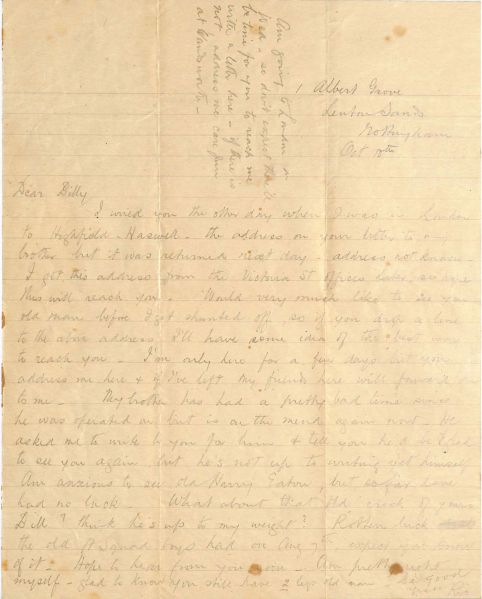 Am going to London on
Wed - so don't expect there'll
be time for you to reach me
with a letter here - if there is
not address me care
at Wandsworth -
1 Albert Grove
Lenton Sands
Nottingham
Oct
Dear Billy
I wired you the other day when I was in London
to Highfield Haswell - the address on your letter to
brother but it was returned next day - address not known
I got this address from the Victoria St Offices later, so hope
this will reach you. Would very much like to see you
old man before I get shunted off so if you drop a line
to the above address I'll have some idea of the best way
to reach you - I'm only here for a few days but you
address me here & if I've left my friends here will forward it on
to me - My brother has had a pretty bad time since
he was operated on but is on the mend again now - He
asked me to write to you for him & tell you he'd be glad
to see you again, but he's not up to writing yet himself
Am anxious to see old Harry Eaton, but so far have
had no luck What about that old crock of yours
Bill? think he's up to my weight? Rotten luck
the old Squad boys had on Aug 7th, expect you know
of it - Hope to hear from you soon - Am pretty right
myself - glad to know you still have 2 legs old man